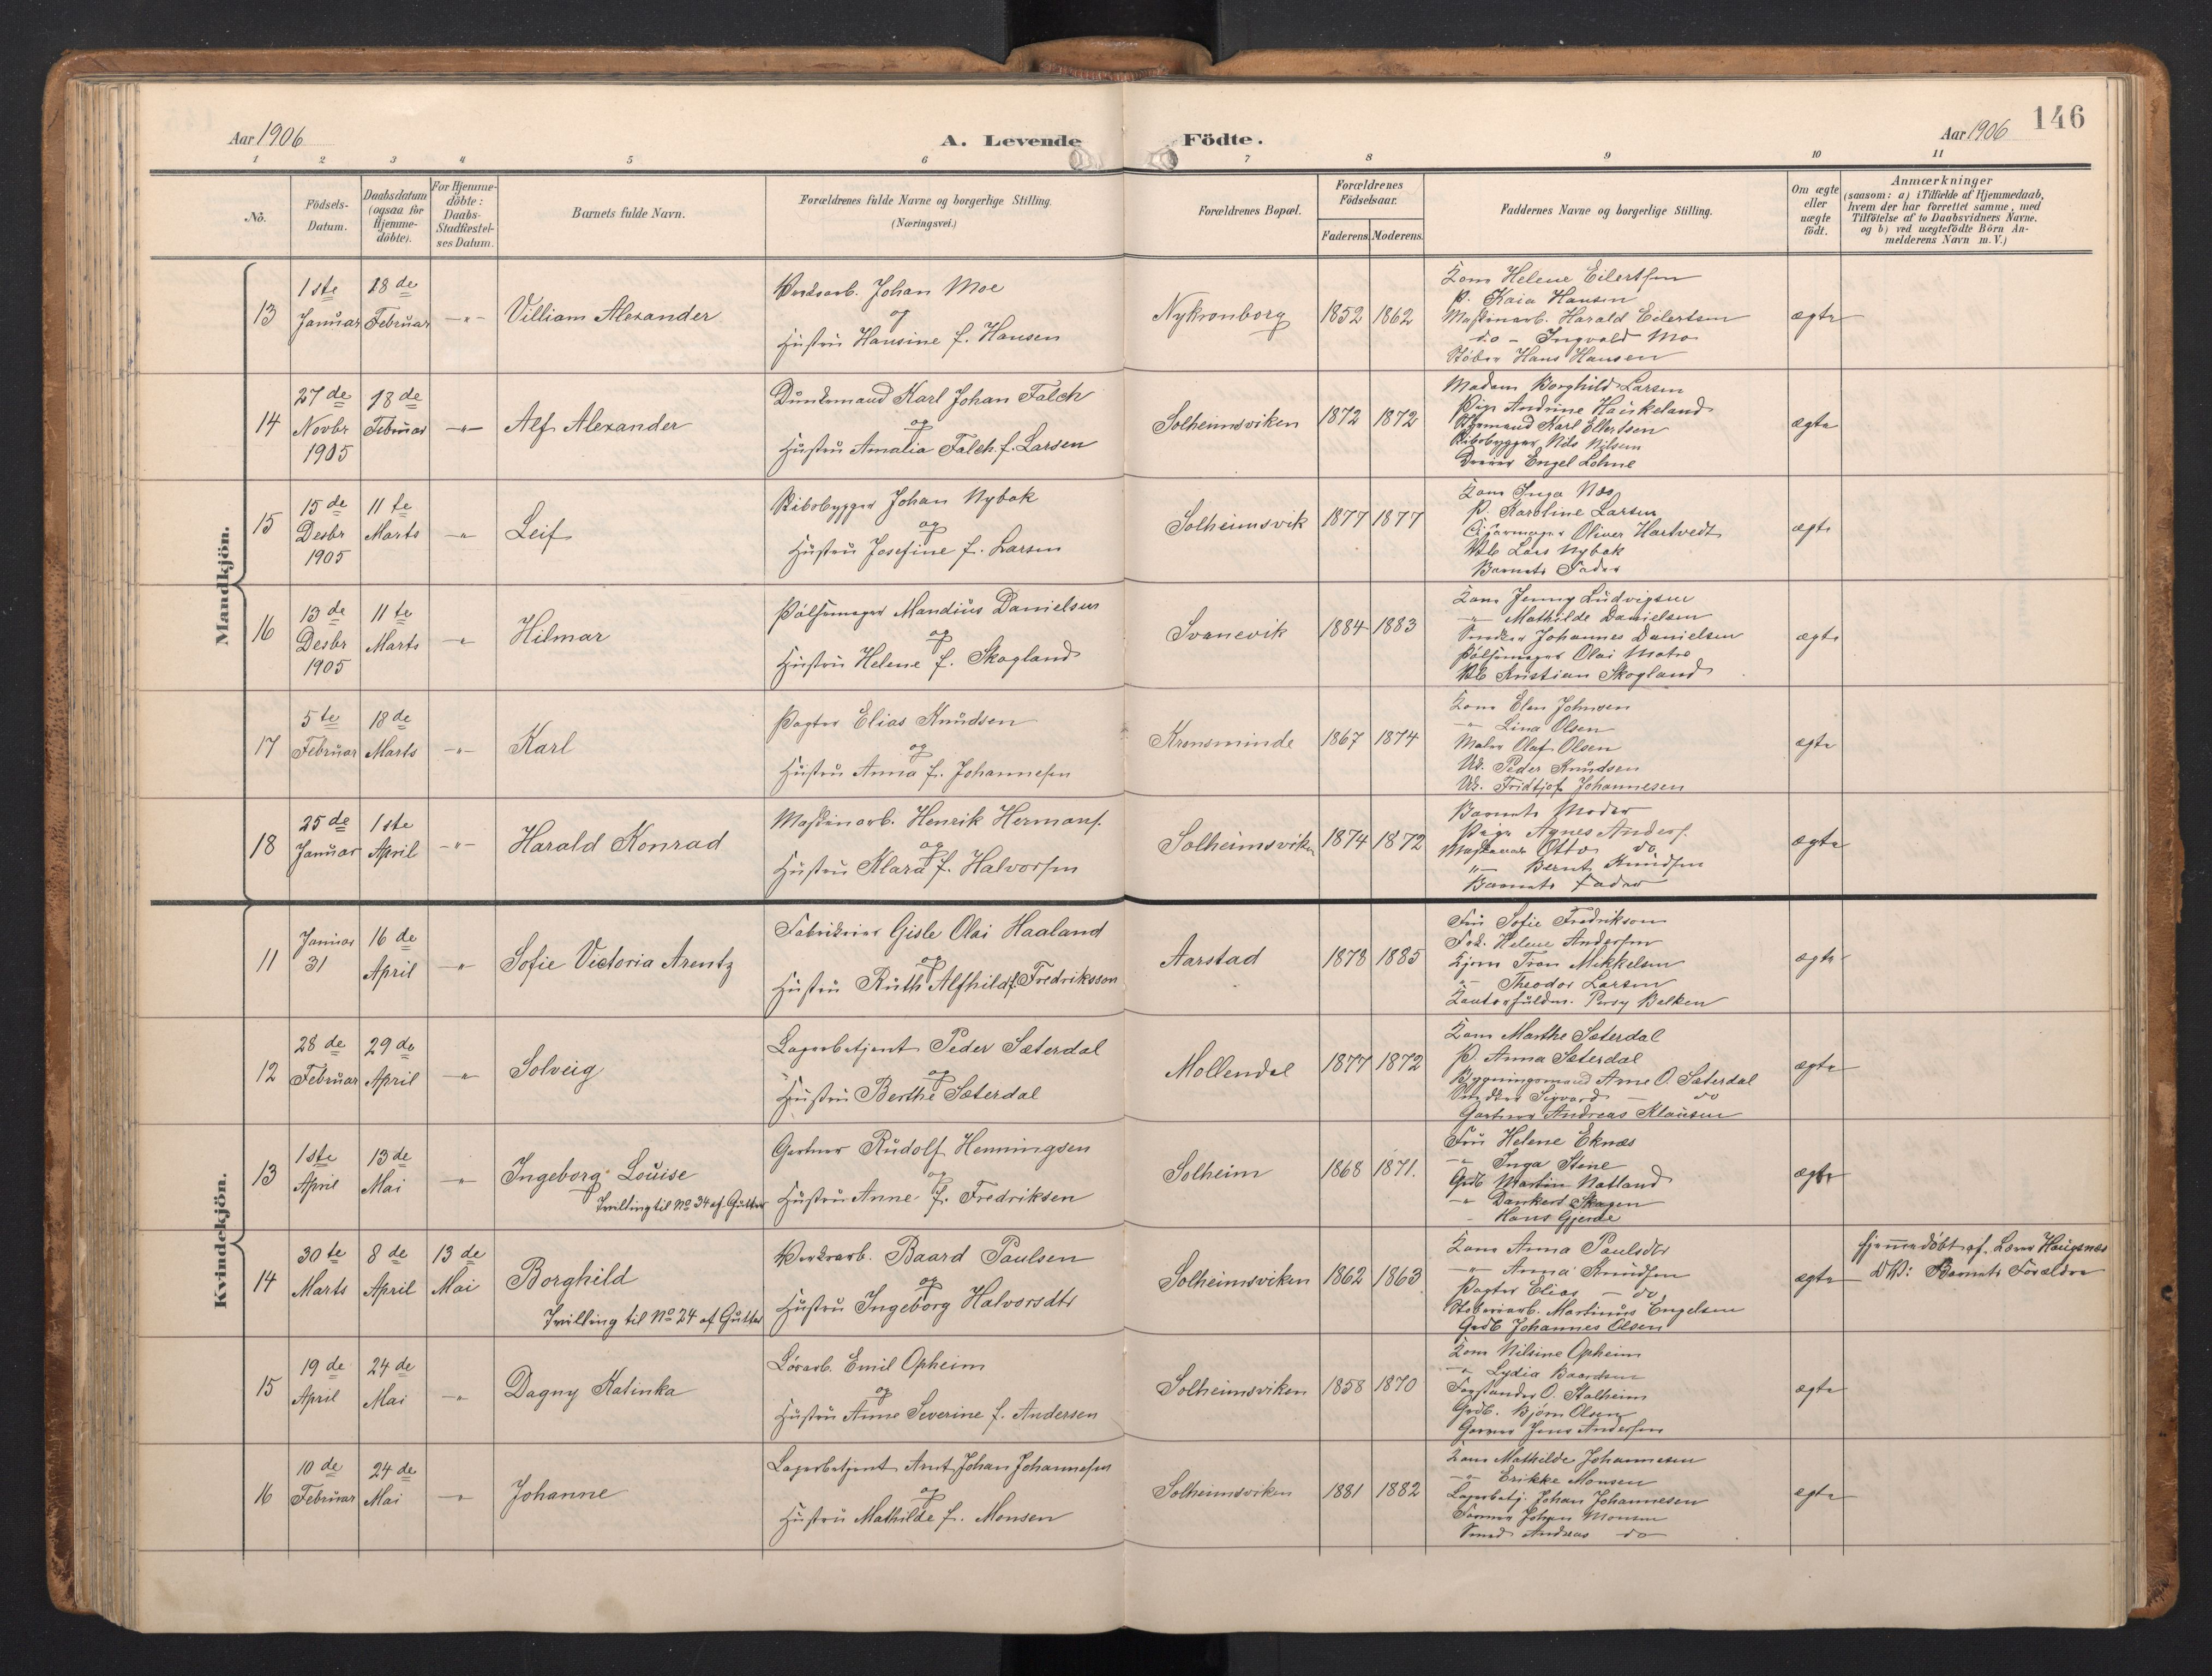 146
Aar 1906
A. Levende Födte.
Aar 1906
1 2 3 4 5 6 7 8 9 10 11
No.
Födsels-Datum.
Daabsdatum (ogsaa for Hjemme-döbte).
For Hjemme-döbte: Daabs-Stadfæstel-ses Datum.
Barnets fulde Navn.
Forældrenes fulde Navne og borgerlige Stilling.
(Næringsvei.)
Forældrenes Bopæl.
Forældrenes Födselsaar.
Faderens. Moderens.
Faddernes Navne og borgerlige Stilling.
Om ægte eller uægte födt.
Anmærkninger
(saasom: a) i Tilfælde af Hjemmedaab,
hvem der har forrettet samme, med
Tilföielse af to Daabsvidners Navne.
og b) ved uægtefödte Börn An-
melderens Navn m.V.)
Mandkjön.
13
1ste Januar
18de Februar
Villiam Alexander
Johan Moe
og
Hustru Hansine f. Hansen
Nykronborg
1852 1862
Kone Helene Eilertsen
P. Kaia Hansen
Maskinarb. Harald Eilertsen
do - Ingvald Mo
Støber Hans Hansen
ægte
14
27de Novbr 1905
18de Februar
Alf Alexander
Karl Johan Falch
og
Hustru Amalia Falch f. Larsen
Solheimsviken
1872 1872
Madam Borghild Larsen
Pige Andrine Haukeland
Karl Ellertsen
Skibsbygger Nils Nilsen
Dreier Engel Lohne
ægte
15
15de Desbr 1905
11te Marts
Leif
Skibsbygger Johan Nybok
og
Hustru Josefine f. Larsen
Solheimsvik
1877 1877
Kone Inga Næs
P. Karoline Larsen
Oliver Hartvedt
Lars Nybok
Barnets Fader
ægte
16
13de Desbr 1905
11te Marts
Hilmar
Pølsemager Mandius Danielsen
og
Hustru Helene f. Skogland
Svanevik
1884 1883
Kone Jenny Ludvigsen
" Mathilde Danielsen
Snedker Johannes Danielsen
Pølsemager Olai Matre
Kristian Skogland
ægte
17
5te Februar
18de Marts
Karl
Pagter Elias Knudsen
og
Hustru Anna f. Johannesen
Kronsminde
1867 1874
Kone Elen Johnsen
" Lina Olsen
Maler Olaf Olsen
Uk. Peder Knudsen
Uk. Fridtjof Johannesen
ægte
18
25de Januar
1ste April
Harald Konrad
Maskinarb. Henrik Hermans.
og
Hustru Klara f. Halvorsen
Solheimsviken
1874 1872
Barnets Moder
Pige Agnes Anders.
Otto do
" Bernt Knudsen
Barnets Fader
ægte
Kvindekjön.
11
Januar 31
16de April
Sofie Victoria Arentz
Fabrikeier Gisle Olai Haaland
og
Hustru Ruth Alfhild f. Fredriksson
Aarstad
1878 1885
Fru Sofie Fredrikson
Frk. Helene Andersen
Kjøm Tron Mikkelsen
" Theodor Larsen
Kontorfuldm. Percy Balken
ægte
12
28de Februar
29de April
Solveig
Lagerbetjent Peder Sæterdal
og
Hustru Berthe Sæterdal
Møllendal
1877 1872
Kone Marthe Sæterdal
P. Anna Sæterdal
Bygningsmand Arne O. Sæterdal
Snedker Sigvard do
Gartner Andreas Klausen
ægte
13
1ste April
13de Mai
Ingeborg Louise
Tvilling til No 34 af Gutter
Gartner Rudolf Henningsen
og
Hustru Anne f. Fredriksen
Solheim
1868 1871.
Fru Helene Eknæs
" Inga Stene
Grdb Martin Natland
" Dankert Skagen
Hans Gjerde
ægte
14
30te Marts
8de April
13de Mai
Borghild
Tvilling til No 24 af Gutter
Verksarb. Baard Paulsen
og
Hustru Ingeborg Halvorsdtr
Solheimsviken
1862 1863
Kone Anna Paulsdtr
" Anna Knudsen
Pagter Elias - do
Støberiarb. Martinus Engelsen
Grdb Johannes Olsen
ægte
Hjemmedöbt af Lærer Haugsnæs
DV: Barnets Forældre
15
19de April
24de Mai
Dagny Katinka
Løsarb. Emil Opheim
og
Hustru Anne Severine f. Andersen
Solheimsviken
1858 1870
Kone Nilsine Opheim
" Lydia Baardsen
Forstander O. Stalheim
Grdb. Bjørn Olsen
Garver Jens Andersen
ægte
16
10de Februar
24de Mai
Johanne
Lagerbetjent Arnt Johan Johannesen
og
Hustru Mathilde f. Monsen
Solheimsviken
1881 1882
Kone Mathilde Johannesen
" Erikke Monsen
Lagerbetj. Johan Johannesen
Former Johan Monsen
Smed Andreas do
ægte